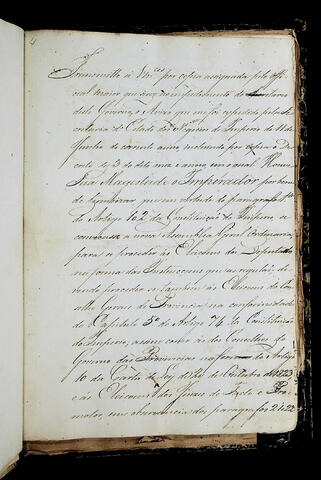 4
Transmitto á Vm.ces por copia assignada pelo offi
cial maior que serve no impedimento do Secretario
deste Governo, o Aviso que me foi expedido pela Se
cretaria d'Estado dos Negocios do Imperio de 11 de
Junho do corrente anno incluindo por copia o De
creto de 3 do dito mez e anno, em o qual Houve
Sua Magestade o Imperador, por bem
de
em virtude do paragrafo 1º
do Artigo 102 da Constituição do Imperio, e
convocar a nova Assemblea Geral Ordinaria,
para se proceder ás Eleicoens dos Deputados
na forma das Instrucçoens que as regulão: de
vendo proceder-se tambem ás Eleicoens do Con
selho Geral de Provincia, na conformidade
do Capitulo 5º do Artigo 74 da Constituição
do Imperio, assim como ás dos Conselhos do
Governo das Provincias na forma do Artigo
10 da Carta de Ley de 20 de Outubro de 1823
e ás Eleicoens dos Juizes de Facto e Pro
motor, em observancia dos paragrafos 21 e 22